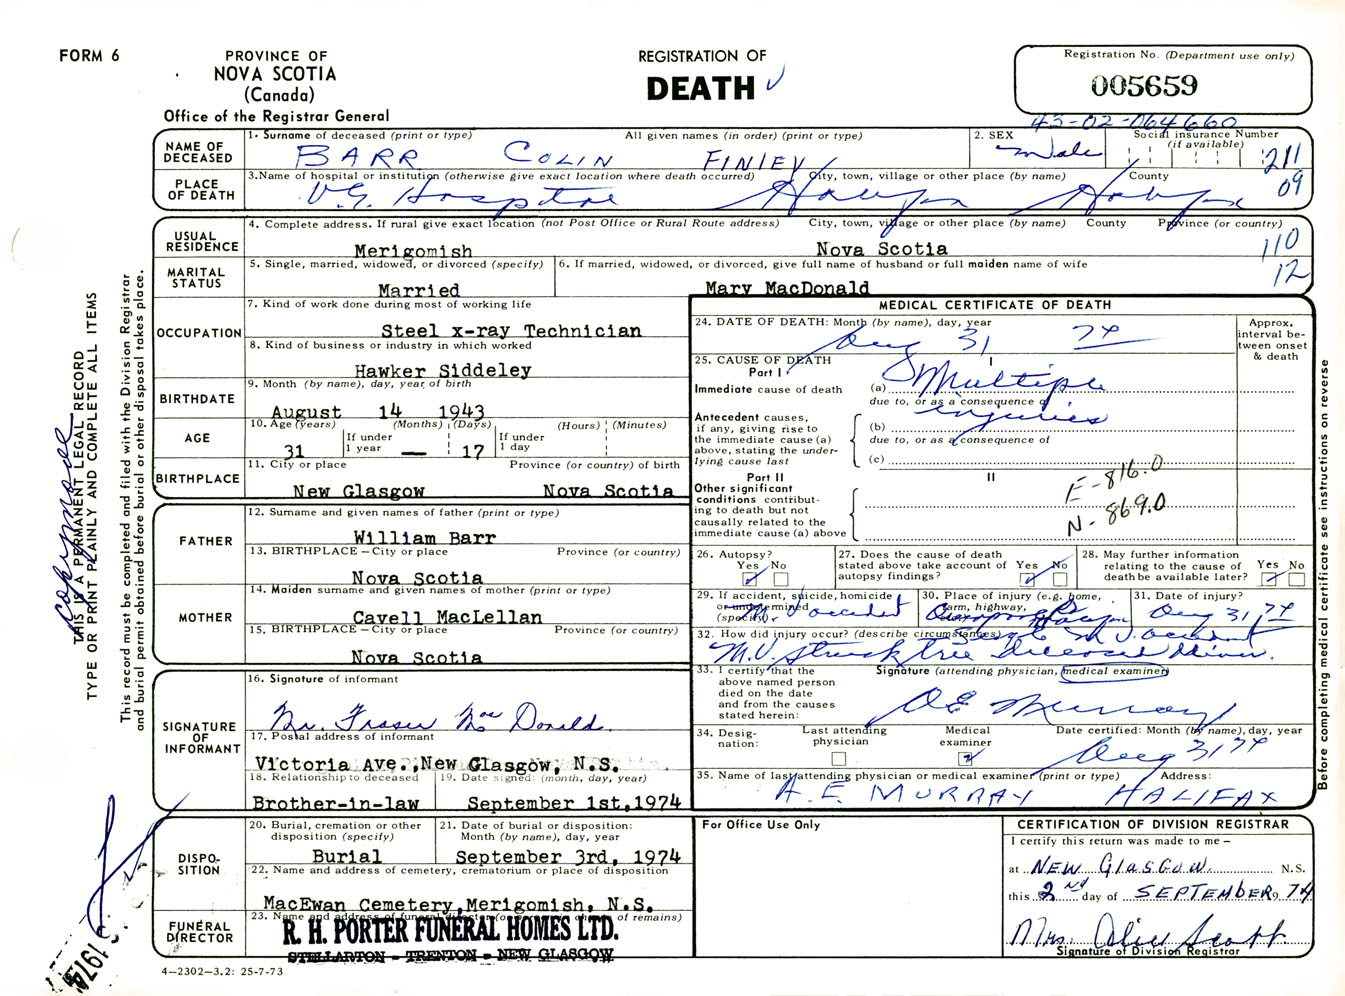 FORM 6
PROVINCE OF
NOVA SCOTIA
(Canada)
Office of the Registrar General
REGISTRATION OF
DEATH
Registration No. (Department use only)
005659
43-02-064660
NAME OF
DECEASED
1. Surname of deceased (print or type) All given names (in order) (print or type)
BARR COLIN FINLEY
2. SEX
Male
Social insurance Number
(if available)
211
PLACE
OF DEATH
3. Name of hospital or institution (otherwise give exact location where death occurred) City, town, village or other place (by name) County
V.G. Hospital Halifax Halifax
09
USUAL
RESIDENCE
4. Complete address. If rural give exact location (not Post Office or Rural Route address) City, town, village or other place (by name) County Province (or country)
Merigomish Nova Scotia
110
MARITAL
STATUS
5. Single, married, widowed, or divorced (specify)
Married
6. If married, widowed, or divorced, give full name of husband or full maiden name of wife
Mary MacDonald
12
OCCUPATION
7. Kind of work done during most of working life
Steel x-ray Technician
8. Kind of business or industry in which worked
Hawker Siddeley
BIRTHDATE
9. Month (by name), day, year of birth
August 14 1943
AGE
10. Age (years) (Months) (Days) (Hours) (Minutes)
31 If under 1 year — 17 If under 1 day
BIRTHPLACE
11. City or place Province (or country) of birth
New Glasgow Nova Scotia
FATHER
12. Surname and given names of father (print or type)
William Barr
13. BIRTHPLACE – City or place Province (or country)
Nova Scotia
MOTHER
14. Maiden surname and given names of mother (print or type)
Cavell MacLellan
15. BIRTHPLACE – City or place Province (or country)
Nova Scotia
SIGNATURE
OF
INFORMANT
16. Signature of informant
Mr. Fraser MacDonald.
17. Postal address of informant
Victoria Ave., New Glasgow, N.S.
18. Relationship to deceased
Brother-in-law
19. Date signed: (month, day, year)
September 1st, 1974
DISPO-
SITION
20. Burial, cremation or other
disposition (specify)
Burial
21. Date of burial or disposition:
Month (by name), day, year
September 3rd, 1974
22. Name and address of cemetery, crematorium or place of disposition
MacEwan Cemetery, Merigomish, N.S.
FUNERAL
DIRECTOR
23. Name and address of funeral director (or of remains)
R. H. PORTER FUNERAL HOMES LTD.
STELLARTON - TRENTON - NEW GLASGOW
4—2302—3.2: 25-7-73
MEDICAL CERTIFICATE OF DEATH
24. DATE OF DEATH: Month (by name), day, year
Aug 31 74
Approx.
interval be-
tween onset
& death
25. CAUSE OF DEATH
Part I
I
Immediate cause of death
(a) Multiple
due to, or as a consequence of
injuries
Antecedent causes,
if any, giving rise to
the immediate cause (a)
above, stating the under-
lying cause last
(b)
due to, or as a consequence of
(c)
Part II
II
Other significant
conditions contribut-
ing to death but not
causally related to the
immediate cause (a) above
E-816.0
N-869.0
26. Autopsy?
Yes No
27. Does the cause of death
stated above take account of
autopsy findings?
Yes No
28. May further information
relating to the cause of
death be available later?
Yes No
29. If accident, suicide, homicide
or undetermined
(specify)
M.V. accident
30. Place of injury (e.g. home,
farm, highway,
31. Date of injury?
Aug 31, 74
32. How did injury occur? (describe circumstances)
Single M.V. accident
M.V. struck tree deceased driver.
33. I certify that the
above named person
died on the date
and from the causes
stated herein:
Signature (attending physician, medical examiner)
A E Murray
34. Desig-
nation:
Last attending
physician
Medical
examiner
Date certified: Month (by name), day, year
Aug 31 74
35. Name of last attending physician or medical examiner (print or type) Address:
A. E. MURRAY HALIFAX
For Office Use Only
CERTIFICATION OF DIVISION REGISTRAR
I certify this return was made to me –
at NEW GLASGOW. N.S.
this 2nd day of SEPTEMBER 1974
Mrs. Alice Scott
Signature of Division Registrar
THIS IS A PERMANENT LEGAL RECORD
TYPE OR PRINT PLAINLY AND COMPLETE ALL ITEMS
This record must be completed and filed with the Division Registrar
and burial permit obtained before burial or other disposal takes place.
Before completing medical certificate see instructions on reverse
1974